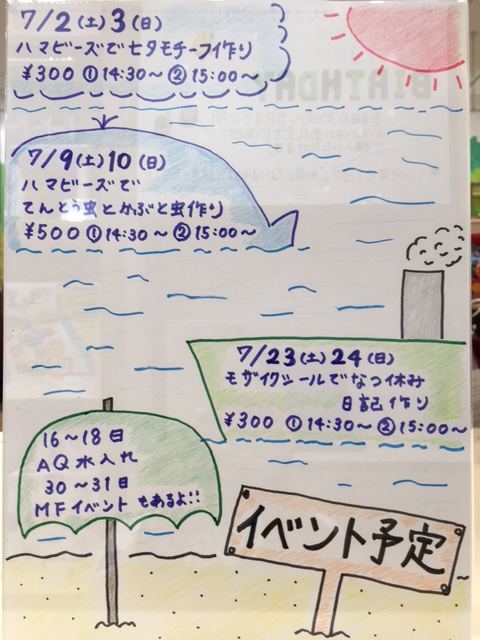 7/2(土)3(日)
ハマビーズで七夕モチーフ作り
¥300 ①14:30〜 ②15:00〜
7/9(土)10(日)
ハマビーズで
てんとう虫とかぶと虫作り
¥500 ①14:30〜 ②15:00〜
7/23(土)24(日)
モザイクシールでなつ休み
日記作り
¥300 ①14:30〜 ②15:00〜
16〜18日
AQ水入れ
30〜31日
MFイベントもあるよ!!
イベント予定
BIRTHDAY